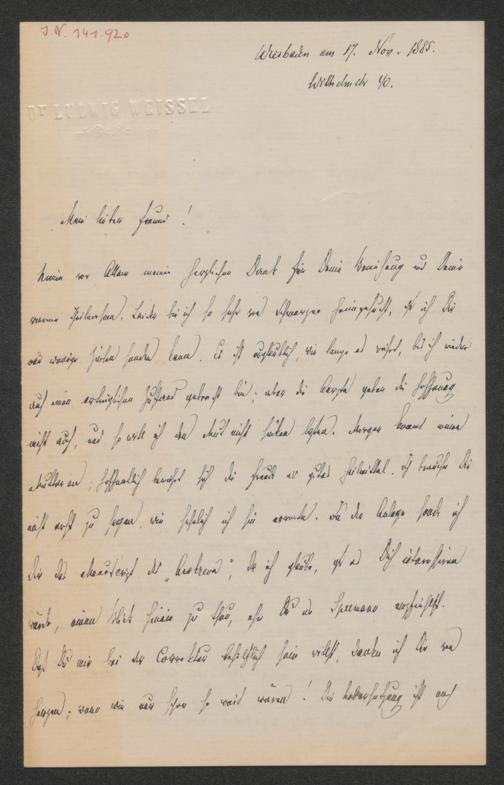 J.N. 141.920
Wiesbaden am 17. Nov. 1885.
Wilhelmstr 40.
DR LUDWIG WEISSEL
Mein lieber Freund!
vor Allem meinen herzlichen Dank für Deine Bemühung und Deine
warme Theilnahme. Leider bin ich so sehr von Schmerzen heimgesucht, daß ich Dir
nur wenige Zeilen senden kann. Es ist unglaublich, wie lange es währt, bis ich wieder
auf einen erträglichen Zustand gebracht bin; aber die Aerzte geben die Hoffnung
nicht auf, und so will ich den Mut nicht sinken lassen. Morgen kommt meine
Mutter an; hoffentlich bewährt sich die Freude als gutes Heilmittel. Ich brauche Dir
nicht erst zu sagen, wie ich sie erwarte. In der Anlage sende ich
Dir das Manuscript des, da ich glaube, daß es Dich interessiren
würde, einen Blick hinein zu thun, ehe Du es Spemann
Daß Du mir bei der Correktur behilflich sein willst, danke ich Dir von
Herzen; wenn wir nur schon so weit wären! Die ist noch